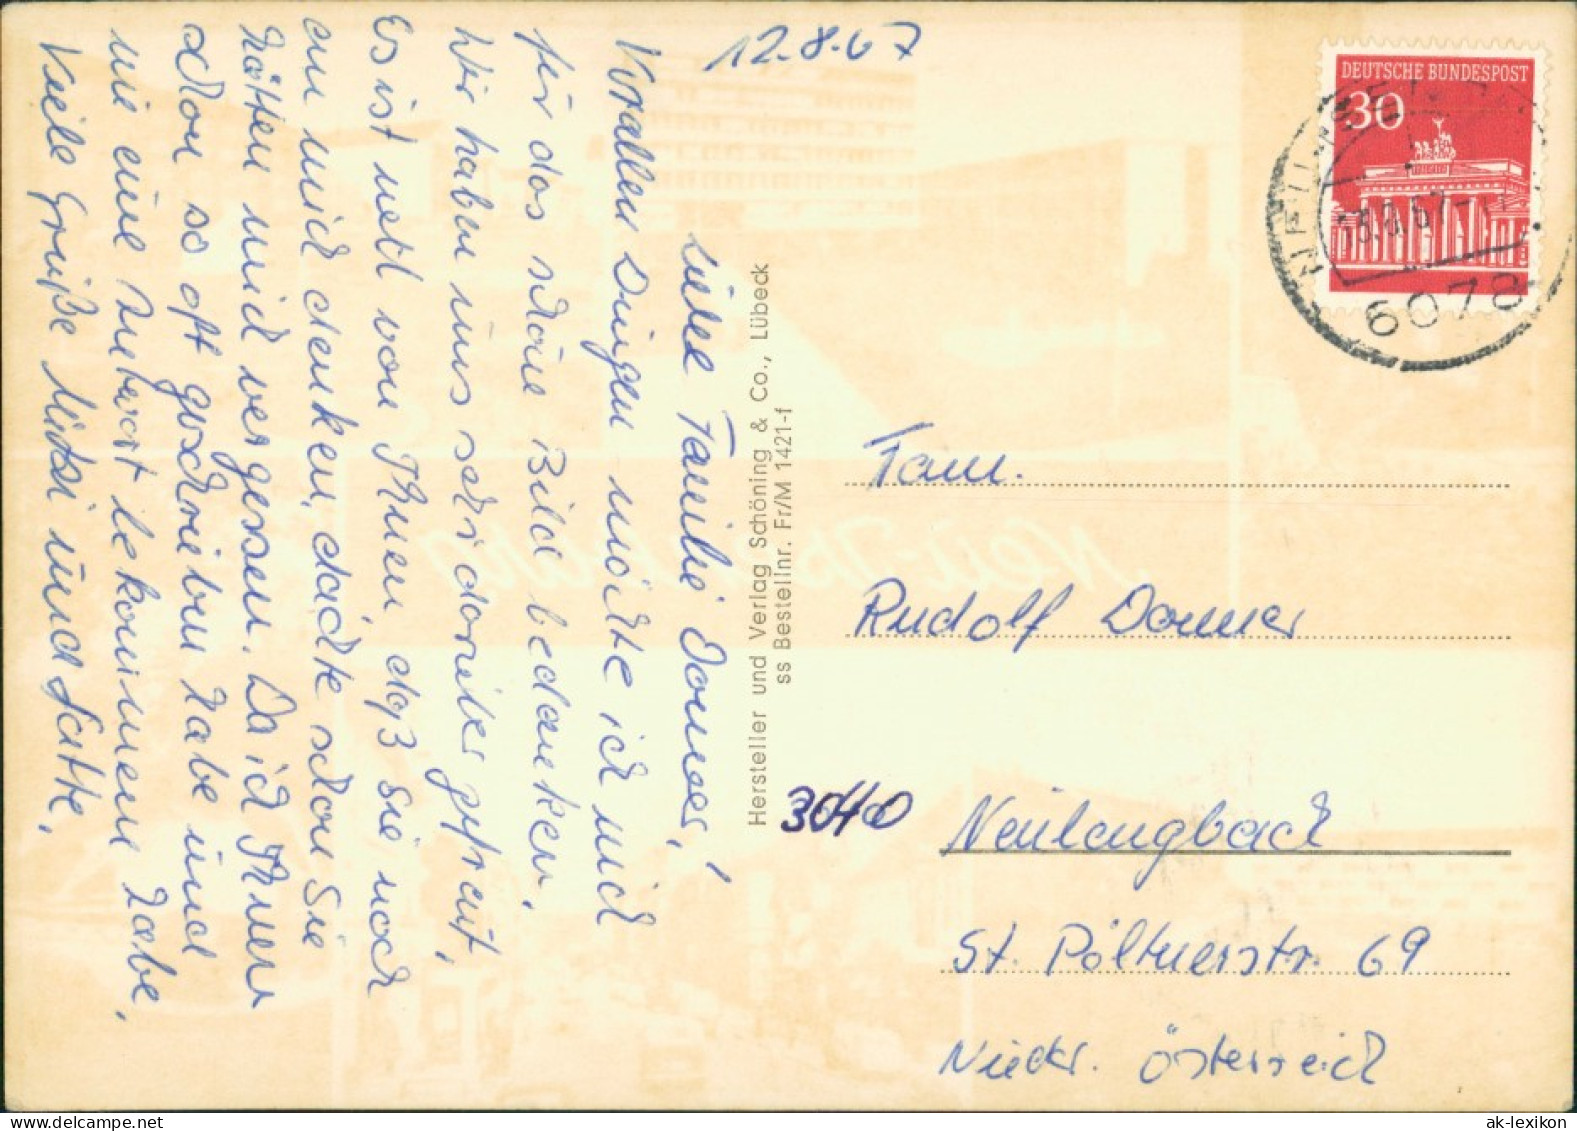 12.8.67
Liebe Familie Donner!
Vor allen Dingen möchte ich mich
für das schöne Bild bedanken.
Wir haben uns sehr darüber gefreut,
Es ist nett von Ihnen, daß Sie noch
an mich denken, dachte schon Sie
hätten mich vergessen. Da ich Ihnen
schon so oft geschrieben habe und
nie eine Antwort bekommen habe.
Viele Grüße und Gatte.
Hersteller und Verlag Schöning & Co., Lübeck
ss Bestellnr. Fr/M 1421-f
DEUTSCHE BUNDESPOST
30
NEU-ISENBURG
6078
Fam.
Rudolf Donner
3040 Neulengbach
St. Pöltnerstr. 69
Niedr. Österreich
Neu-Isenburg
ak-lexikon